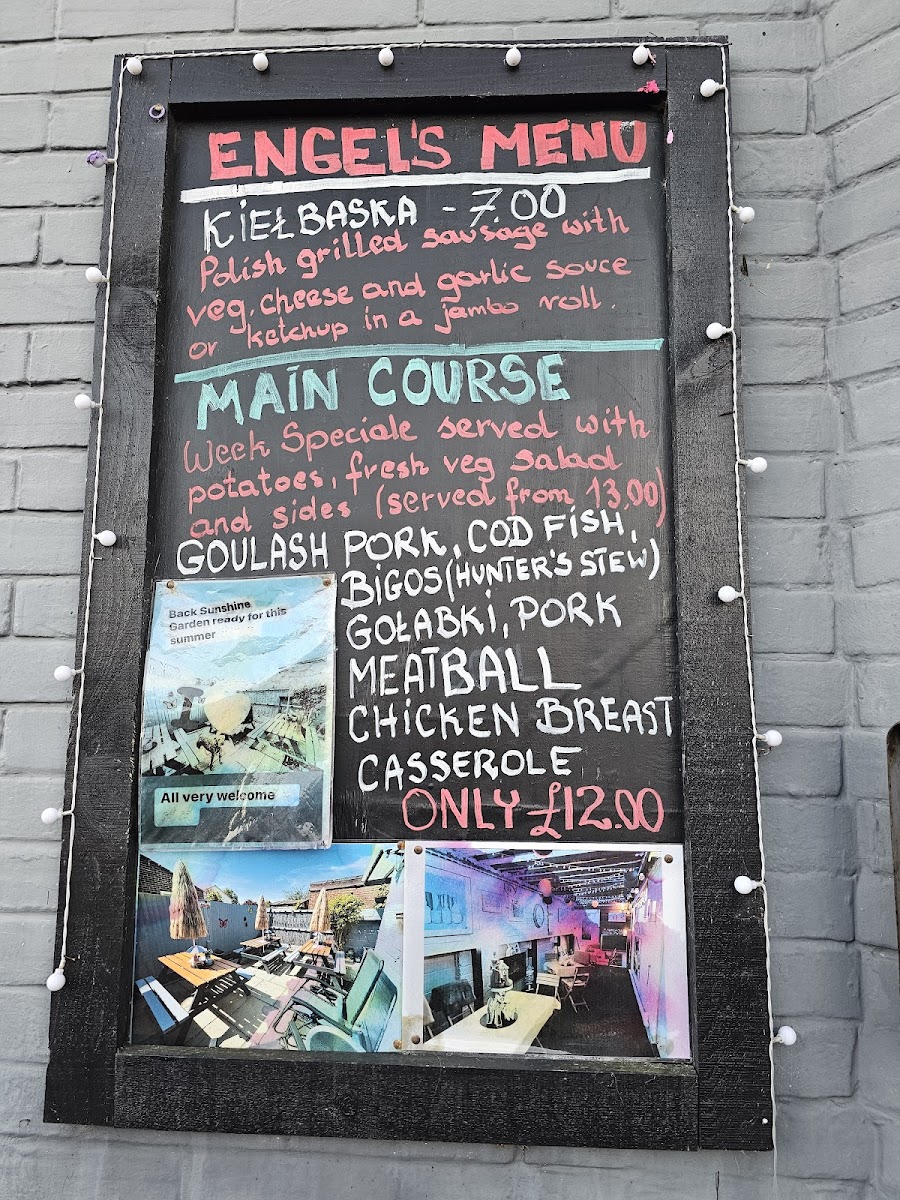 ENGEL'S MENU
KiEŁBASKA - 7.00
Polish grilled sausage with
veg, cheese and garlic souce
or ketchup in a jambo roll.
MAIN COURSE
Week Speciale served with
potatoes, fresh veg salad
and sides (served from 13,00)
GOULASH PORK, COD FiSH,
BiGOS (HUNTER'S STEW)
GOŁABKi, PORK
MEATBALL
CHiCKEN BREAST
CASSEROLE
ONLY £12.00
Back Sunshine
Garden ready for this
summer
All very welcome